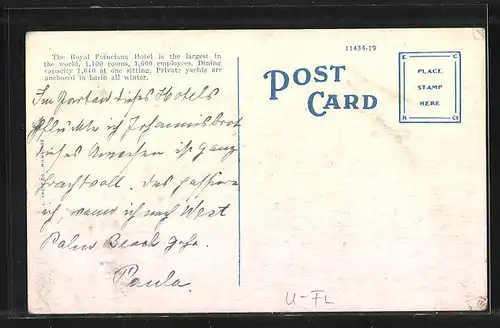 The Royal Poinciana Hotel is the largest in
the world, 1,100 rooms, 1,600 employees. Dining
capacity 1,640 at one sitting. Private yachts are
anchored in basin all winter.
11434-19
POST
CARD
E C
PLACE
STAMP
HERE
K Co
Im dieses Hotels
pflückte ich Johannisbrot
dieses ist ganz
prachtvoll. das passiere
ich, wann ich nach West
Palm Beach gehe.
Paula.
U-FL